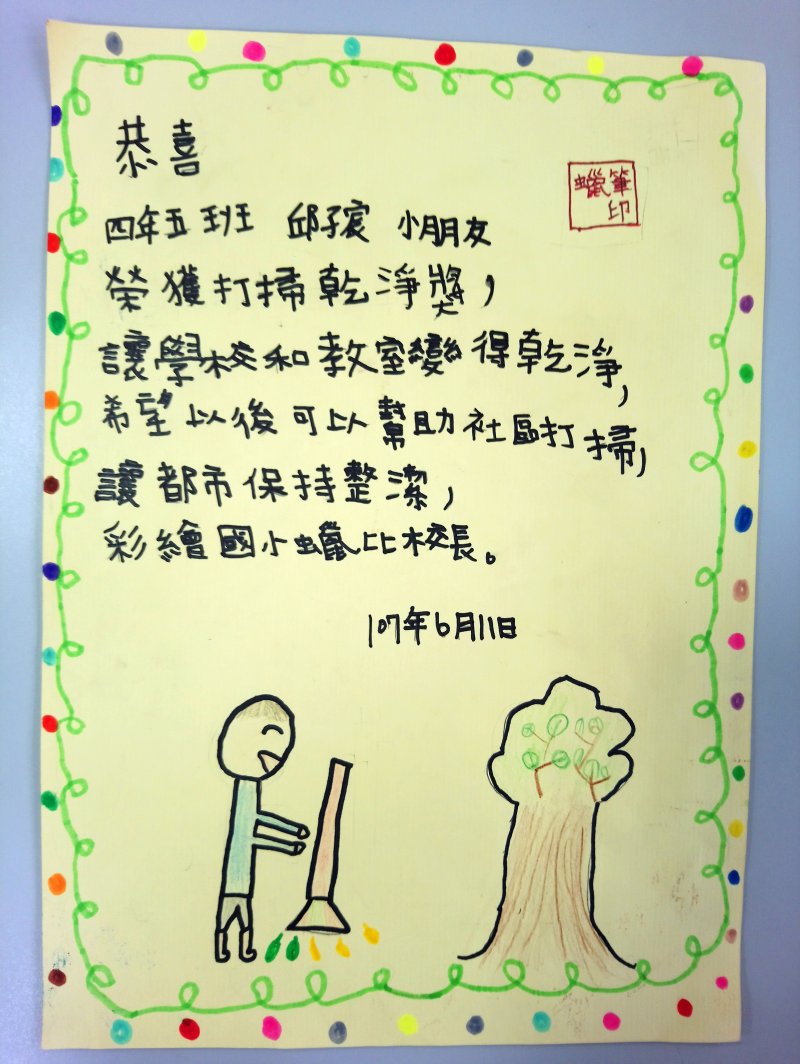 恭喜
蠟筆
印
四年五班 邱子宸 小朋友
榮獲打掃乾淨獎，
讓學校和教室變得乾淨，
希望以後可以幫助社區打掃，
讓都市保持整潔，
彩繪國小蠟比校長。
107年6月11日